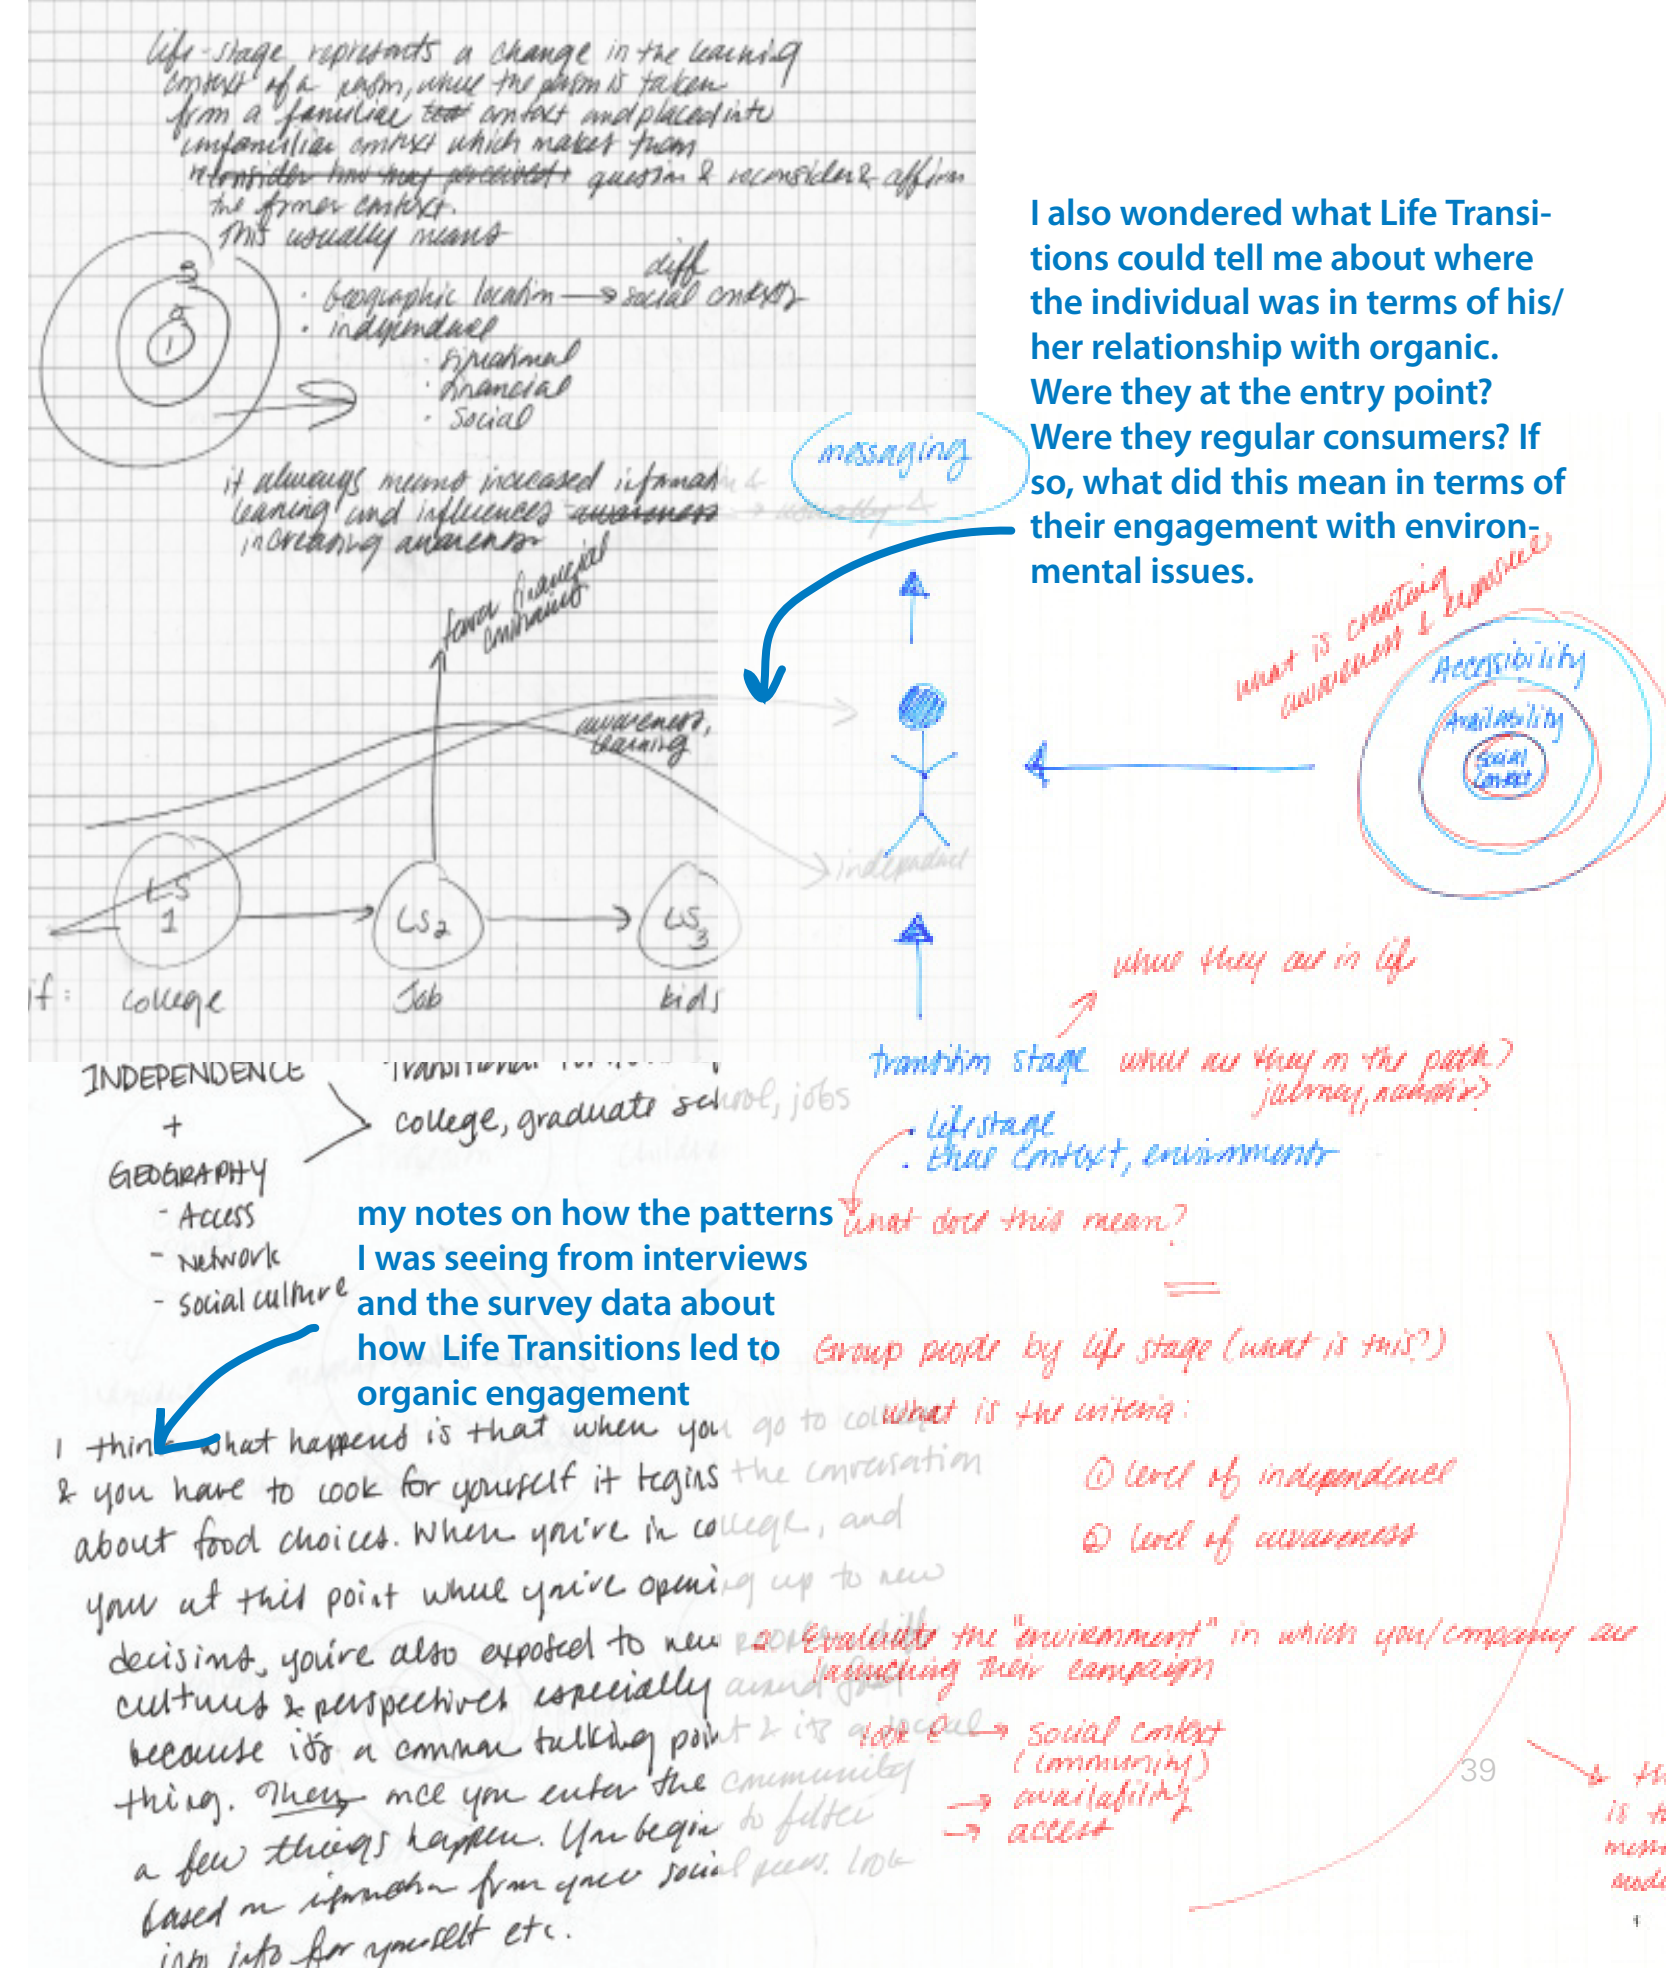 life-stage represents a change in the learning
context of a person, where the person is taken
from a familiar context and placed into
unfamiliar context which makes them
reconsider how they perceived question & reconsider & affirm
the former context.
This usually means
3
2
1
diff
· Geographic location → social contexts
· independence
· situational
· financial
· social
it always means increased information &
learning and influences awareness → usually &
increasing awareness
financial
constraints
awareness,
learning
independence
LS
1
LS2
LS
3
if:
college
Job
kids
I also wondered what Life Transi-
tions could tell me about where
the individual was in terms of his/
her relationship with organic.
Were they at the entry point?
Were they regular consumers? If
so, what did this mean in terms of
their engagement with environ-
mental issues.
messaging
what is creating
awareness & exposure
Accessibility
Availability
Social
Context
where they are in life
transition stage where are they on the path?
journey, narrative?
· life stage
· their context, environments
what does this mean?
INDEPENDENCE
+
GEOGRAPHY
- Access
- Network
- social culture
Transitional
college, graduate school, jobs
my notes on how the patterns
I was seeing from interviews
and the survey data about
how Life Transitions led to
organic engagement
I think what happens is that when you go to college
& you have to cook for yourself it begins the conversation
about food choices. When you're in college, and
your at this point where you're opening up to new
decisions, you're also exposed to new people, diff
cultures & perspectives especially around food
because it's a common talking point & it's a social
thing. Then, once you enter the community
a few things happen. You begin to filter
based on information from your social peers. Look
into info for yourself etc.
Group people by life stage (what is this?)
what is the criteria:
① level of independence
② level of awareness
2 Evaluate the "environment" in which you/company are
launching their campaign
look @ → social context
(community)
→ availability
→ access
39
is